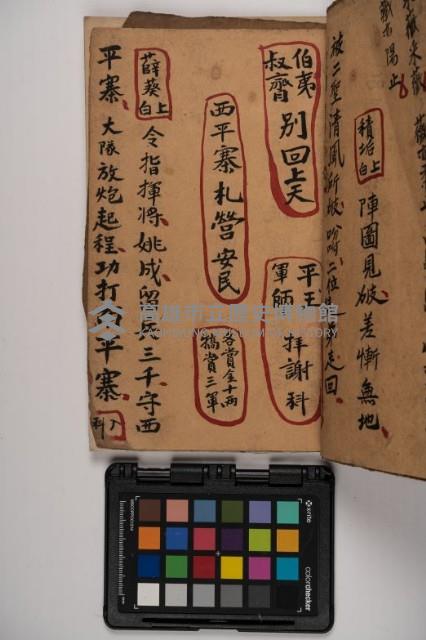 積垢上白 陣圖見破差慚無地
被二聖清風所破吩咐二位
走回
伯夷叔齊 別回上天
平王軍師 拜謝科
西平寨札營安民
各賞金十両
犒賞三軍
薛葵上白 令指揮將姚成留兵三千守西
平寨大隊放炮起程攻打
平寨 入科
高雄市立歷史博物館
x-rite
colorchecker